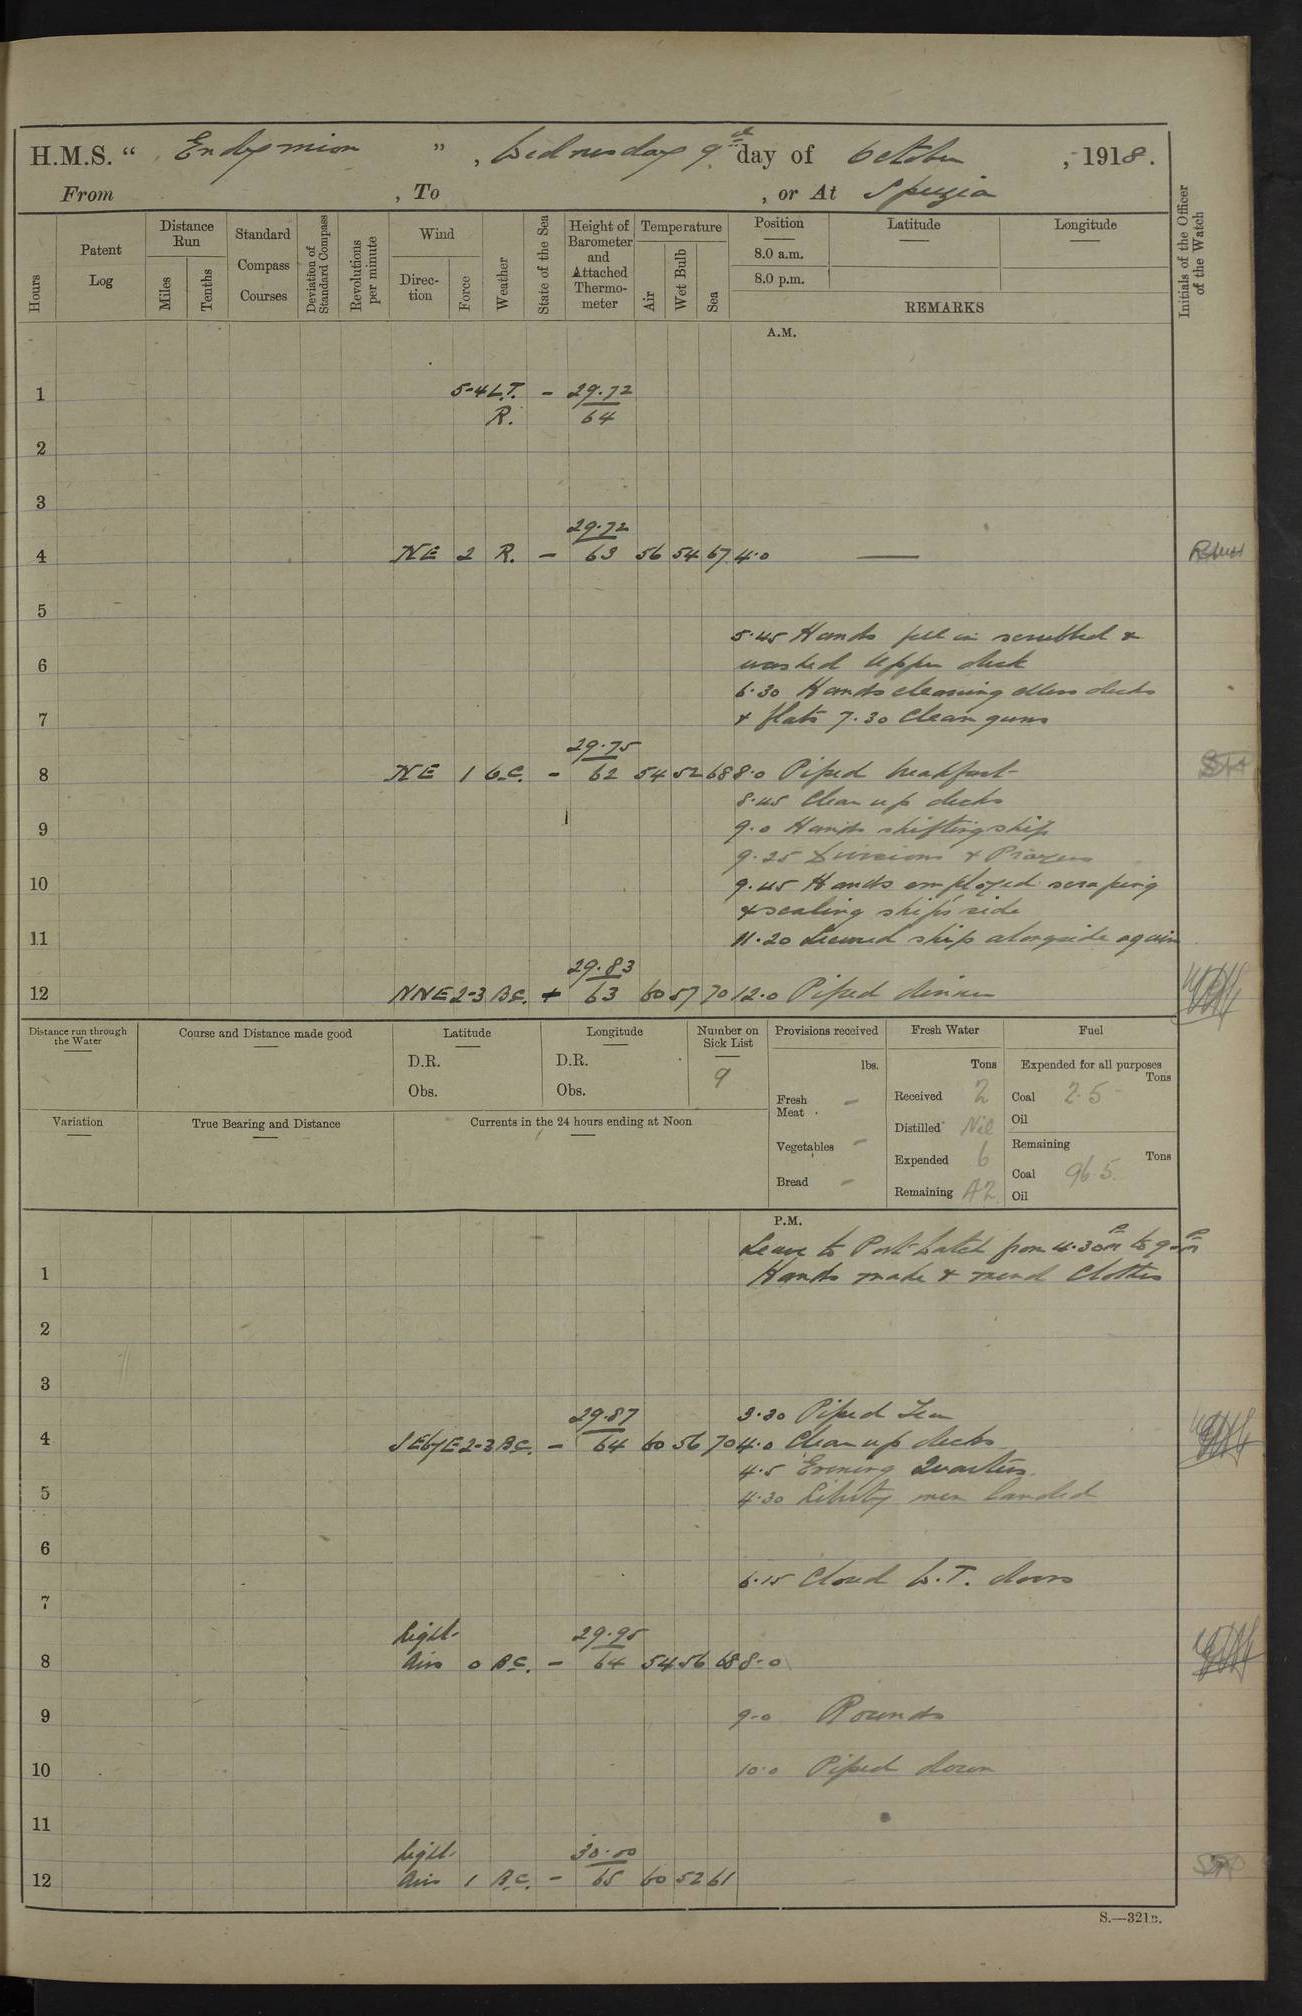 H.M.S. " Endymion ", Wednesday 9th day of October, 1918.
From , To , or At Spezia
Hours
Patent Log
Distance Run
Miles
Tenths
Standard Compass Courses
Deviation of Standard Compass
Revolutions per minute
Wind
Direction
Force
Weather
State of the Sea
Height of Barometer and Attached Thermometer
Temperature
Air
Wet Bulb
Sea
Position
8.0 a.m.
8.0 p.m.
Latitude
Longitude
REMARKS
Initials of the Officer of the Watch
A.M.
1 5-4 L.T. - 29.72
R. 64
2
3
29.72
4 NE 2 R. - 63 56 54 67 4.0 —
5
5.45 Hands fell in scrubbed &
6 washed Upper deck
6.30 Hands cleaning mess decks
7 & flats 7.30 Clean guns
29.75
8 NE 1 b.c. - 62 54 52 68 8.0 Piped breakfast
8.45 Clean up decks
9 9.0 Hands shifting ship
9.25 Divisions & Prayers
10 9.45 Hands employed scraping
& scaling ship's side
11 11.20 Secured ship alongside again
29.83
12 NNE 2-3 B.C. + 63 60 57 70 12.0 Piped dinner
Distance run through the Water
Course and Distance made good
Latitude
D.R.
Obs.
Longitude
D.R.
Obs.
Number on Sick List
9
Provisions received
lbs.
Fresh Meat -
Vegetables -
Bread -
Fresh Water
Tons
Received 2
Distilled Nil
Expended 6
Remaining 42
Fuel
Expended for all purposes
Tons
Coal 2.5
Oil
Remaining
Tons
Coal 96.5
Oil
Variation
True Bearing and Distance
Currents in the 24 hours ending at Noon
P.M.
Leave to Port Watch from 4.30 PM to 9.0 PM
1 Hands make & mend Clothes
2
3
29.87 3.30 Piped Tea
4 SEbyE 2-3 B.C. - 64 60 56 70 4.0 Clean up decks
4.5 Evening Quarters
5 4.30 Liberty men landed
6
6.15 Closed W.T. doors
7
Light 29.95
8 Airs 0 B.C. - 64 54 56 68 8.0
9 9.0 Rounds
10 10.0 Piped down
11
Light 30.00
12 Airs 1 B.C. - 65 60 52 61
S.—321B.